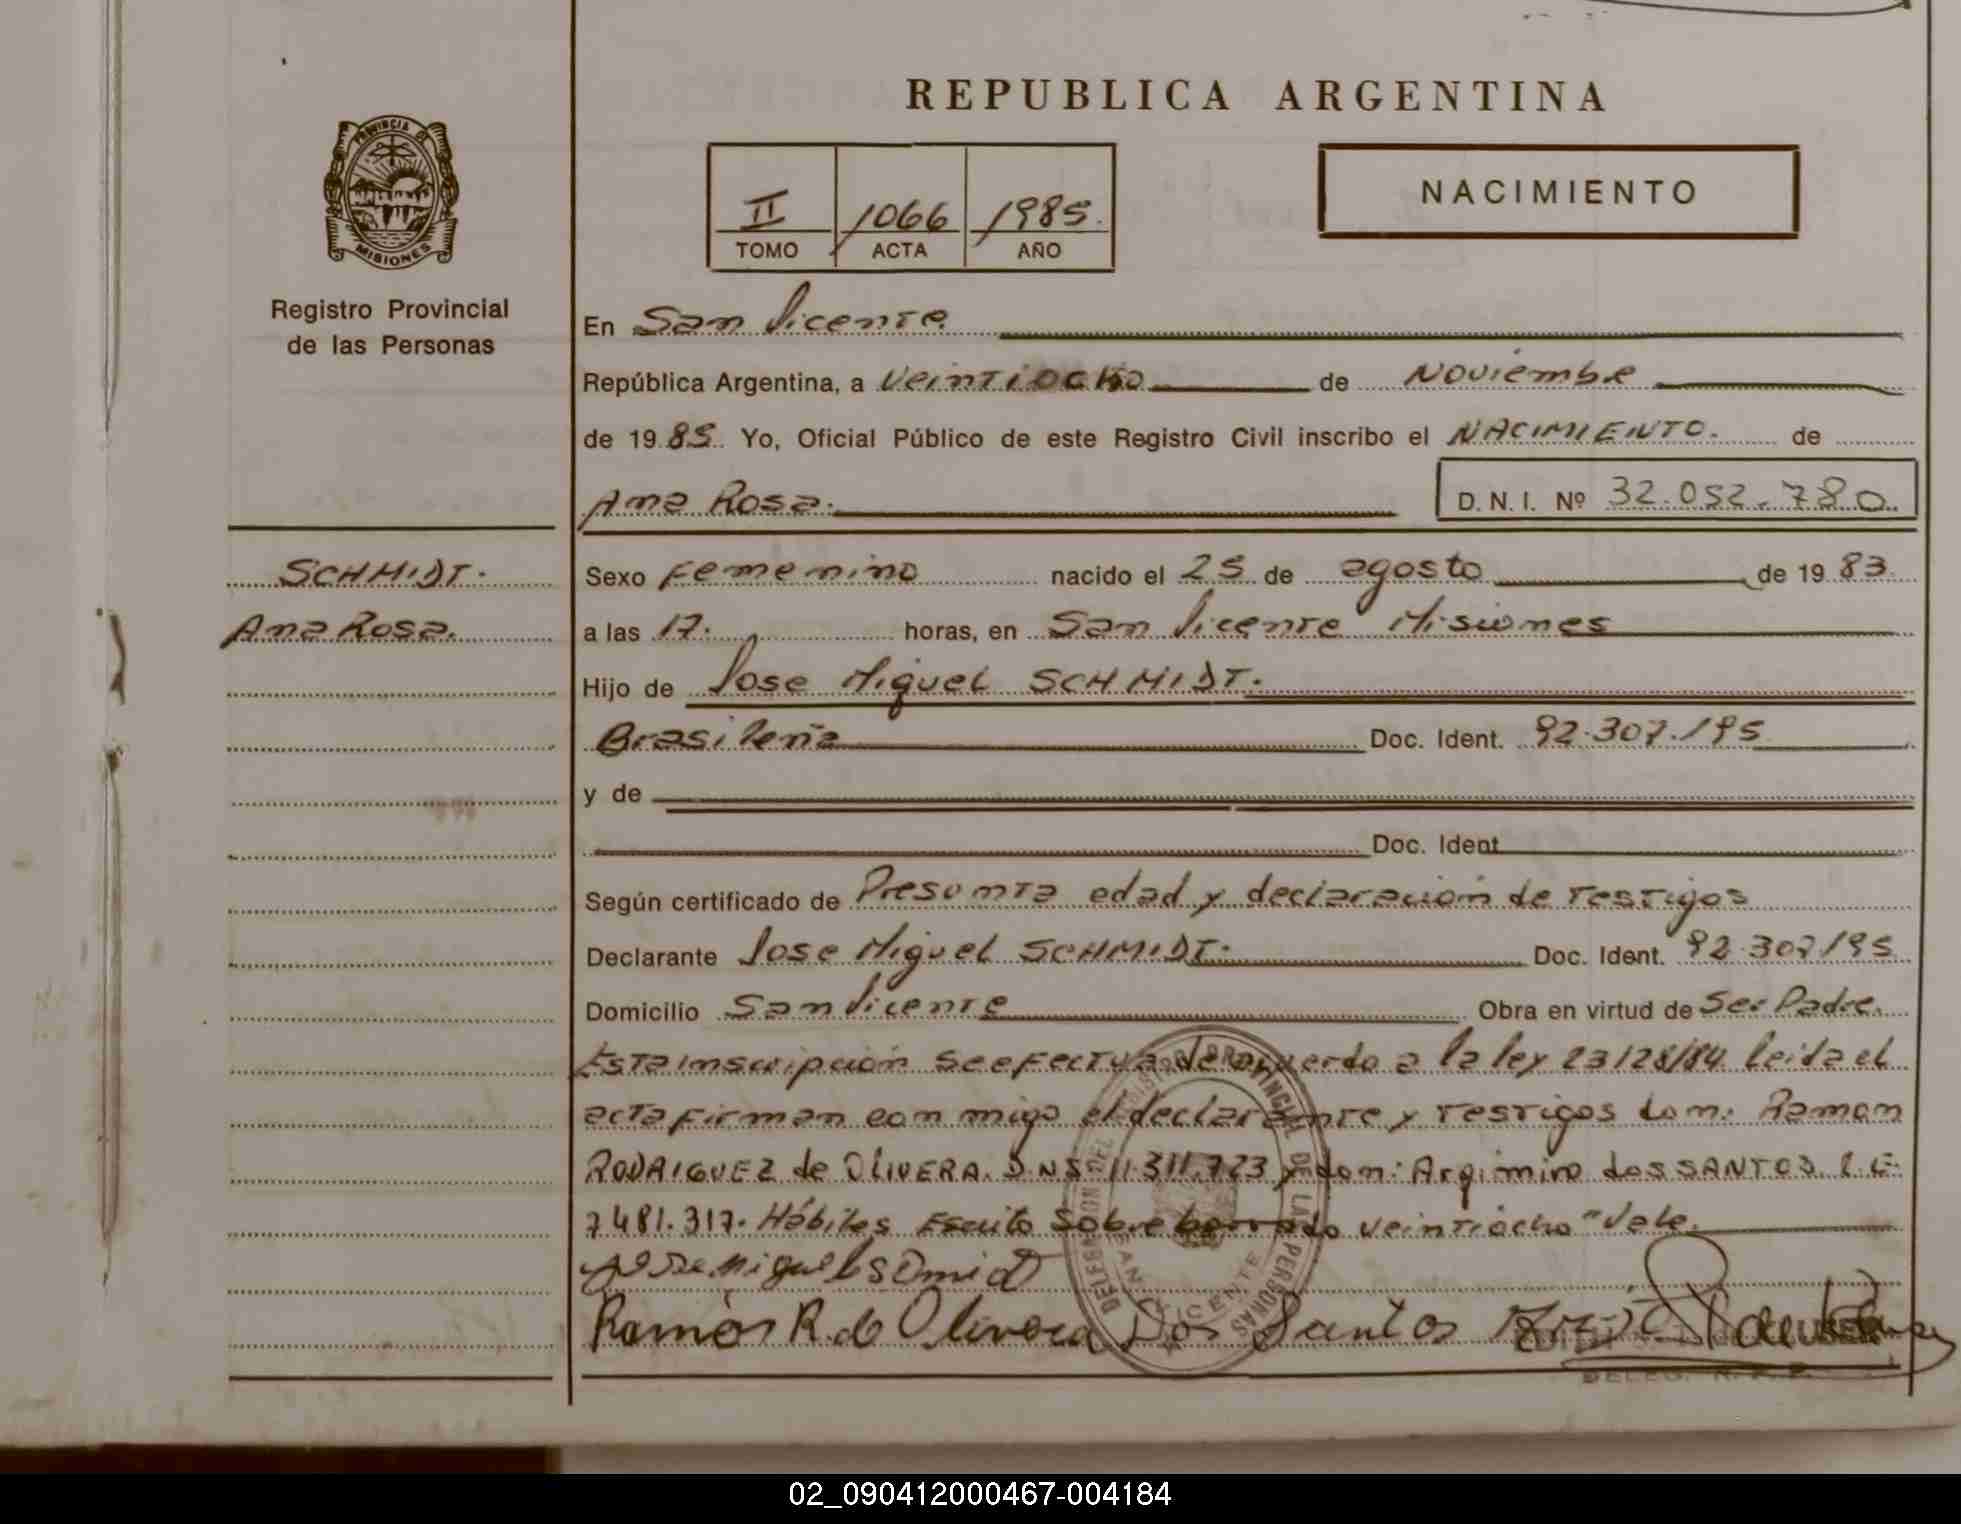 REPUBLICA ARGENTINA
PROVINCIA DE
MISIONES
Registro Provincial
de las Personas
II 1066 1985.
TOMO ACTA AÑO
NACIMIENTO
En San Vicente.
República Argentina, a veintiocho de Noviembre
de 1985. Yo, Oficial Público de este Registro Civil inscribo el NACIMIENTO. de
Ana Rosa. D. N. I. Nº 32.052.780.
SCHMIDT.
Ana Rosa.
Sexo Femenino nacido el 25 de agosto de 1983
a las 17. horas, en San Vicente Misiones
Hijo de Jose Miguel SCHMIDT.
Brasileña Doc. Ident. 92.307.195
y de
Doc. Ident
Según certificado de Presunta edad y declaracion de testigos
Declarante Jose Miguel SCHMIDT. Doc. Ident. 92.307195
Domicilio San Vicente Obra en virtud de Ser Padre.
Esta inscripcion se efectua de acuerdo a la ley 23128/84 leida el
acta firman con migo el declarante y testigos don: Ramon
RODRIGUEZ de OLIVERA. D.N.I 11.311.723 y don: Argimiro dos SANTOS. L.E.
7481.317. Hábiles Escrito Sobre borrado veintiocho "Vale.
Jose Miguel Smidt
Ramón R. de Olivera Dos Santos
DELEGACION DEL REGISTRO PROVINCIAL DE LAS PERSONAS
SAN VICENTE
DELEG. R. P. P.
02_090412000467-004184